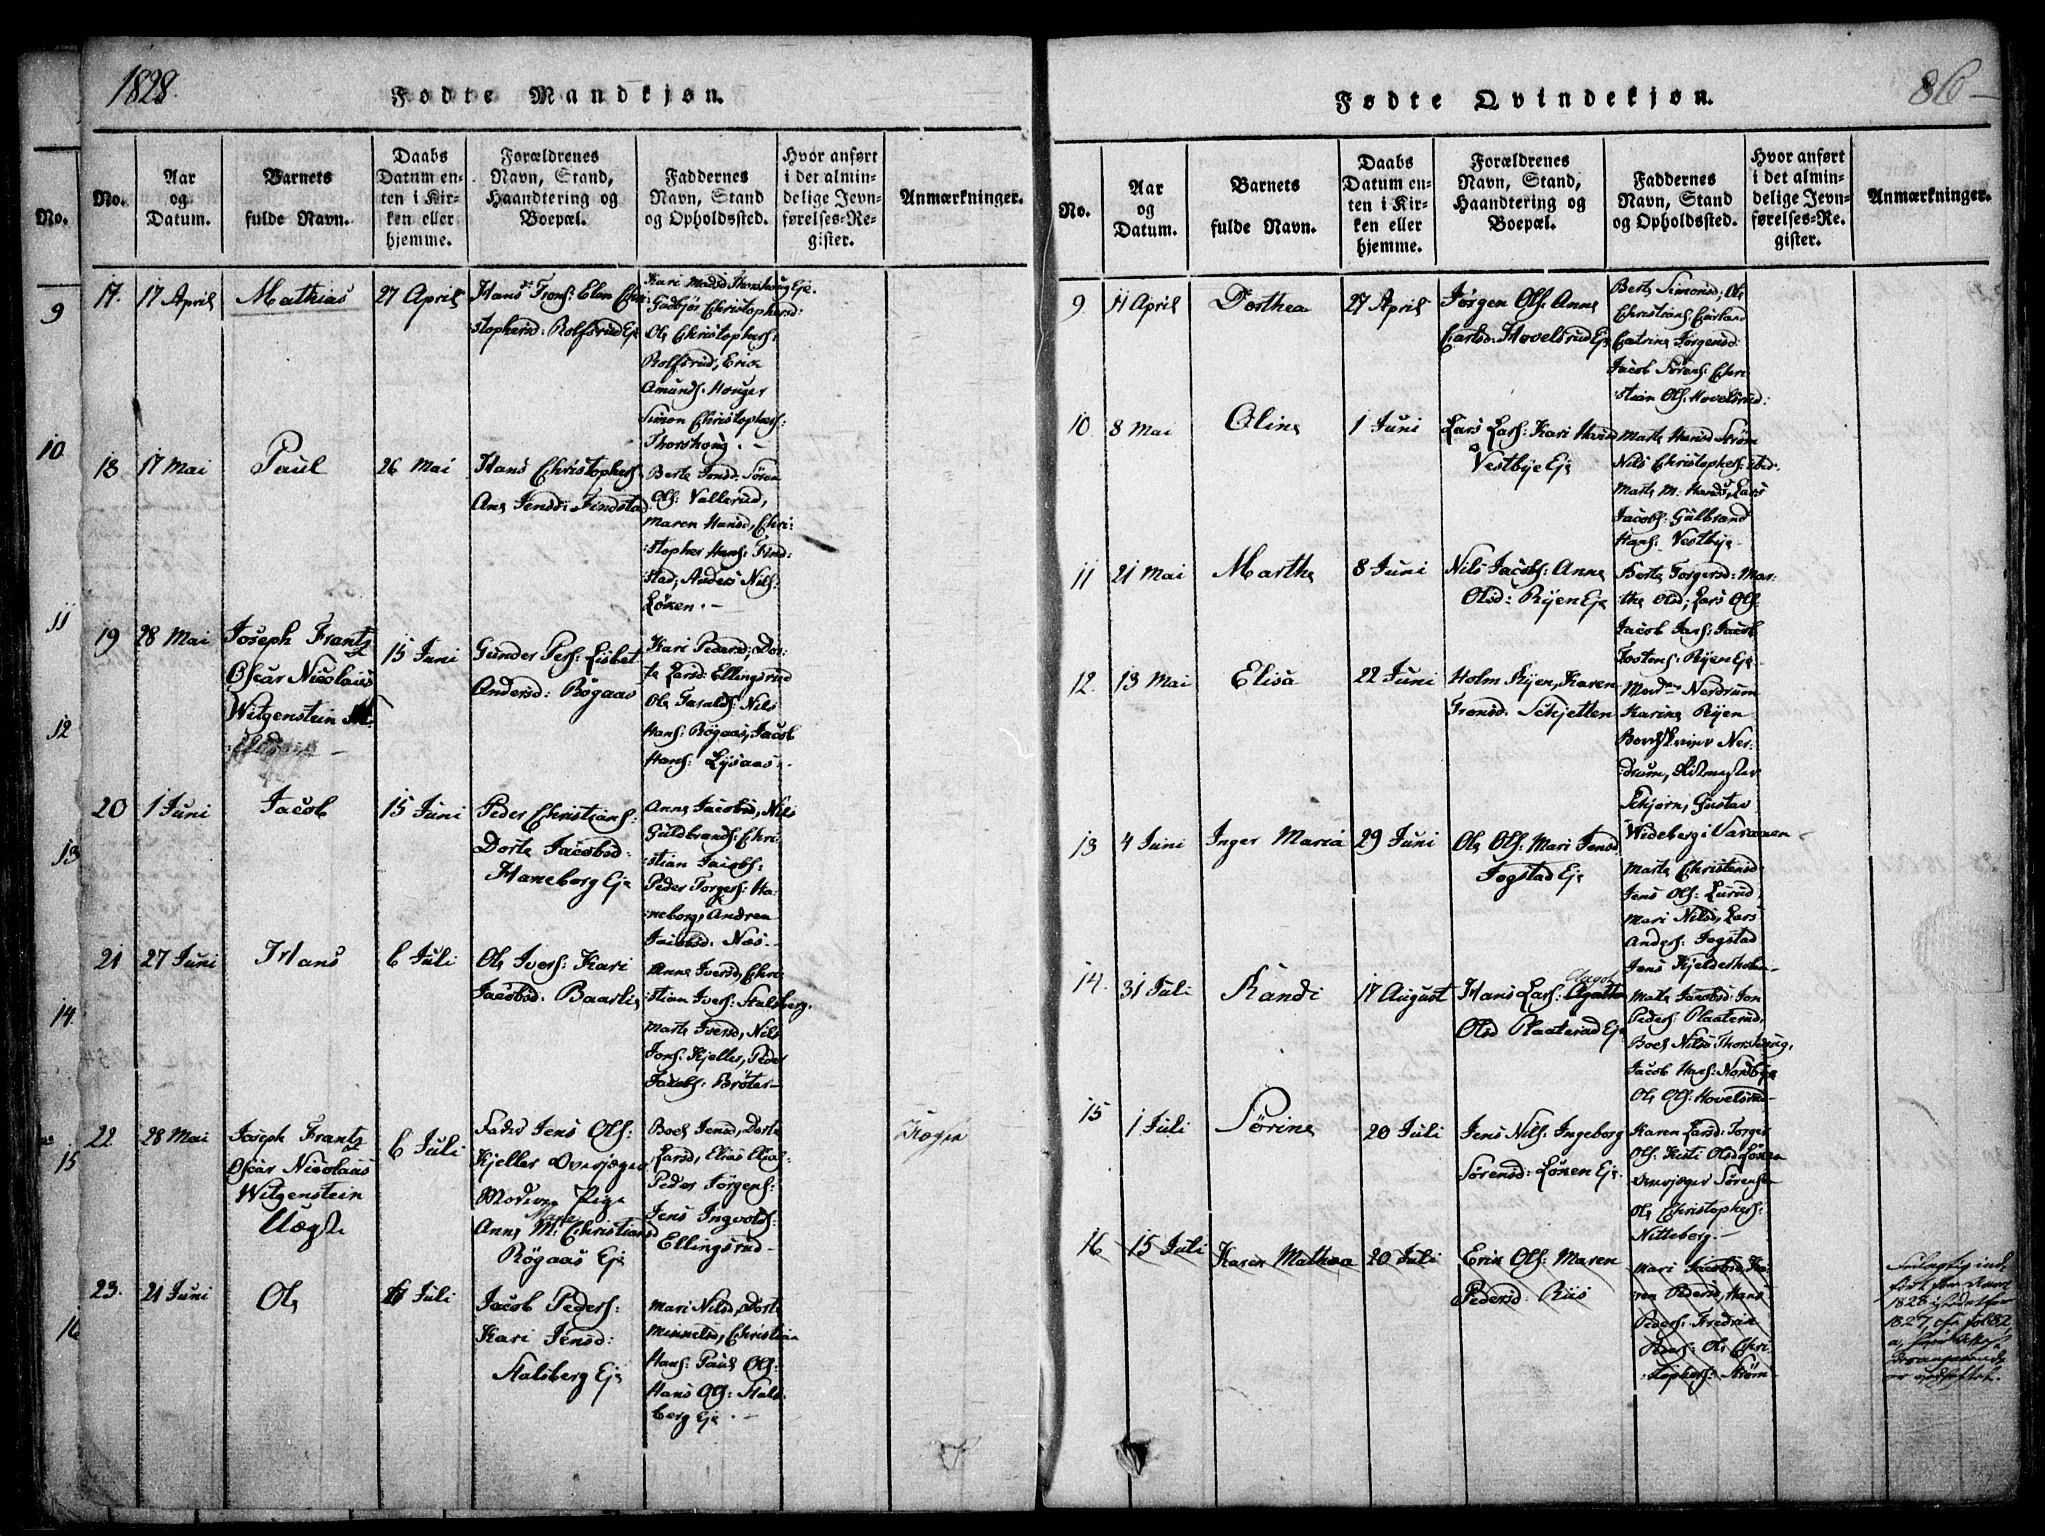 1828.
Fødte Mandkjøn.
No.
Aar og Datum.
Barnets fulde Navn.
Daabs Datum enten i Kirken eller hjemme.
Forældrenes Navn, Stand, Haandtering og Boepæl.
Faddernes Navn, Stand og Opholdssted.
Hvor anført i det almindelige Jevnførelses-Register.
Anmærkninger.
17.
17 April
Mathias
27 April
Hans Trons: Elen Chri
stophersd: Rolfsrud Eje
Kari Madsd Thorshoug Eje.
Gudbjør Christophersd:
Ole Christophers:
Rolfsrud, Erik
Amunds: Houger
Simon Christophers:
Thorshoug. -
18.
17 Mai
Paul
26 Mai
Hans Christophers.
Ane Jensd: Findstad
Berte Jonsd: Søren
Ols: Vallerud,
Maren Hansd, Chri:
:stopher Hans: Find:
stad, Anders Nils:
Løken. -
19
28 Mai
Joseph Frantz
Oscar Nicolaus
Witgenstein
15 Juni
Gunder Pers: Lisbet
Andersd: Røgaas
Kari Pedersd; Dor:
te Larsd: Ellingsrud
Ole Haralds: Nils
Hans: Røgaas, Jacob
Hans: Lysaas -
20
1 Juni
Jacob
15 Juni
Peder Christians:
Dorte Jacobsd:
Haneborg Eje
Anne Jacobsd, Nils
Guldbrands: Chri
:stian Jacobs:
Peder Torgers: Ha
:neborg, Andrea
Jacobsd: Næs -
21
27 Juni
Hans
6 Juli
Ole Ivers: Kari
Jacobsd: Baarlie
Anne Iversd, Chri
:stian Ivers: Stalsberg.
Marte Iversd, Nils
Jons: Kjeller, Peder
Jacobs: Brøter -
22.
28 Mai
Joseph Frantz
Oscar Nicolaus
Witgenstein
Uægte
6 Juli
Fader Jens Ols:
Kjeller
Moder Pige
Marie
Anne M: Christiansd
Røgaas Eje
Boel Jensd, Dorte
Larsd, Elias
Peder Jørgens:
Jens Ingvolds:
Ellingsrud -
23.
21 Juni
Ole
6 Juli
Jacob Peders:
Kari Jensd:
Stalsberg Eje
Mari Nilsd, Dorte
Christian
Hans: Paul Ols:
Hans Ols: Stals
berg Eje. -
No.
9
10
11
12
13
14.
15
16
86 -
Fødte Qvindekjøn.
No.
Aar og Datum.
Barnets fulde Navn.
Daabs Datum enten i Kirken eller hjemme.
Forældrenes Navn, Stand, Haandtering og Boepæl.
Faddernes Navn, Stand og Opholdssted.
Hvor anført i det almindelige Jevnførelses-Register.
Anmærkninger.
9
11 April
Dorthea
27 April
Jørgen Ols: Anne
Carlsd: Hovelsrud Eje
Berte Simonsd; Ole
Christians:
Catrine Jørgensd:
Jacob Sørens: Chri
:stian Ols: Hovelsrud:
10.
8 Mai
Oline
1 Juni
Lars Lars: Kari Hansd
Vestbye Eje
Marte Hansd Strøm
Nils Christophers: ibid.
Marte M. Hansd, Lars
Jacobs: Gulbrand
Hans: Vestbye -
11
21 Mai
Marthe
8 Juni
Nils Jacobs: Anne
Olsd: Ryen Eje
Berte Torgersd: Mar:
the Olsd; Lars Ols:
Jacob Jans: Jacob
Tostens: Ryen Eje -
12.
13 Mai
Elisa
22 Juni
Holm Ryen, Karen
Tronsd: Schjetten
Nerdrum
Karine Ryen
Ner:
:drum, Ritmester
Schjørn, Gustav
Wideberg i Varaaen -
13
4 Juni
Inger Maria
29 Juni
Ole Ols: Mari Jensd
Togstad Eje
Marte Christensd:
Jens Ols: Lurud,
Mari Nilsd, Lars
Anders: Togstad
Jens Kjelderholm -
14.
31 Juli
Randi
17 August
Hans Lars: Agatte
Olsd Plaaterud Eje
Mate Jacobsd: Jon
Peders: Plaaterud,
Boel Nilsd Thorshoug,
Jacob Hans: Nordbye
Ole Ols: Hovelsrud -
15
1 Juli
Sørine
20 Juli
Jens Nils: Ingeborg
Sørensd: Løken Eje
Karen Larsd: Torger
Ols: Kisti Olsd Løken
Sørensen
Ole Christophers:
Nitteberg. -
16
15 Juli
Karen Mathea
20 Juli
Erik Ols: Maren
Pedersd: Riis
Mari Jacobsd, Ka
ren Pedersd, Hans
Peders: Fredrik
Hans: Ole Chri
:stophers: Strøm -
1828
1827